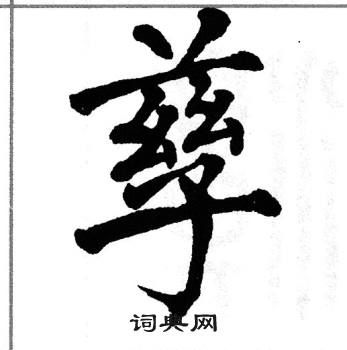 孳
词典网